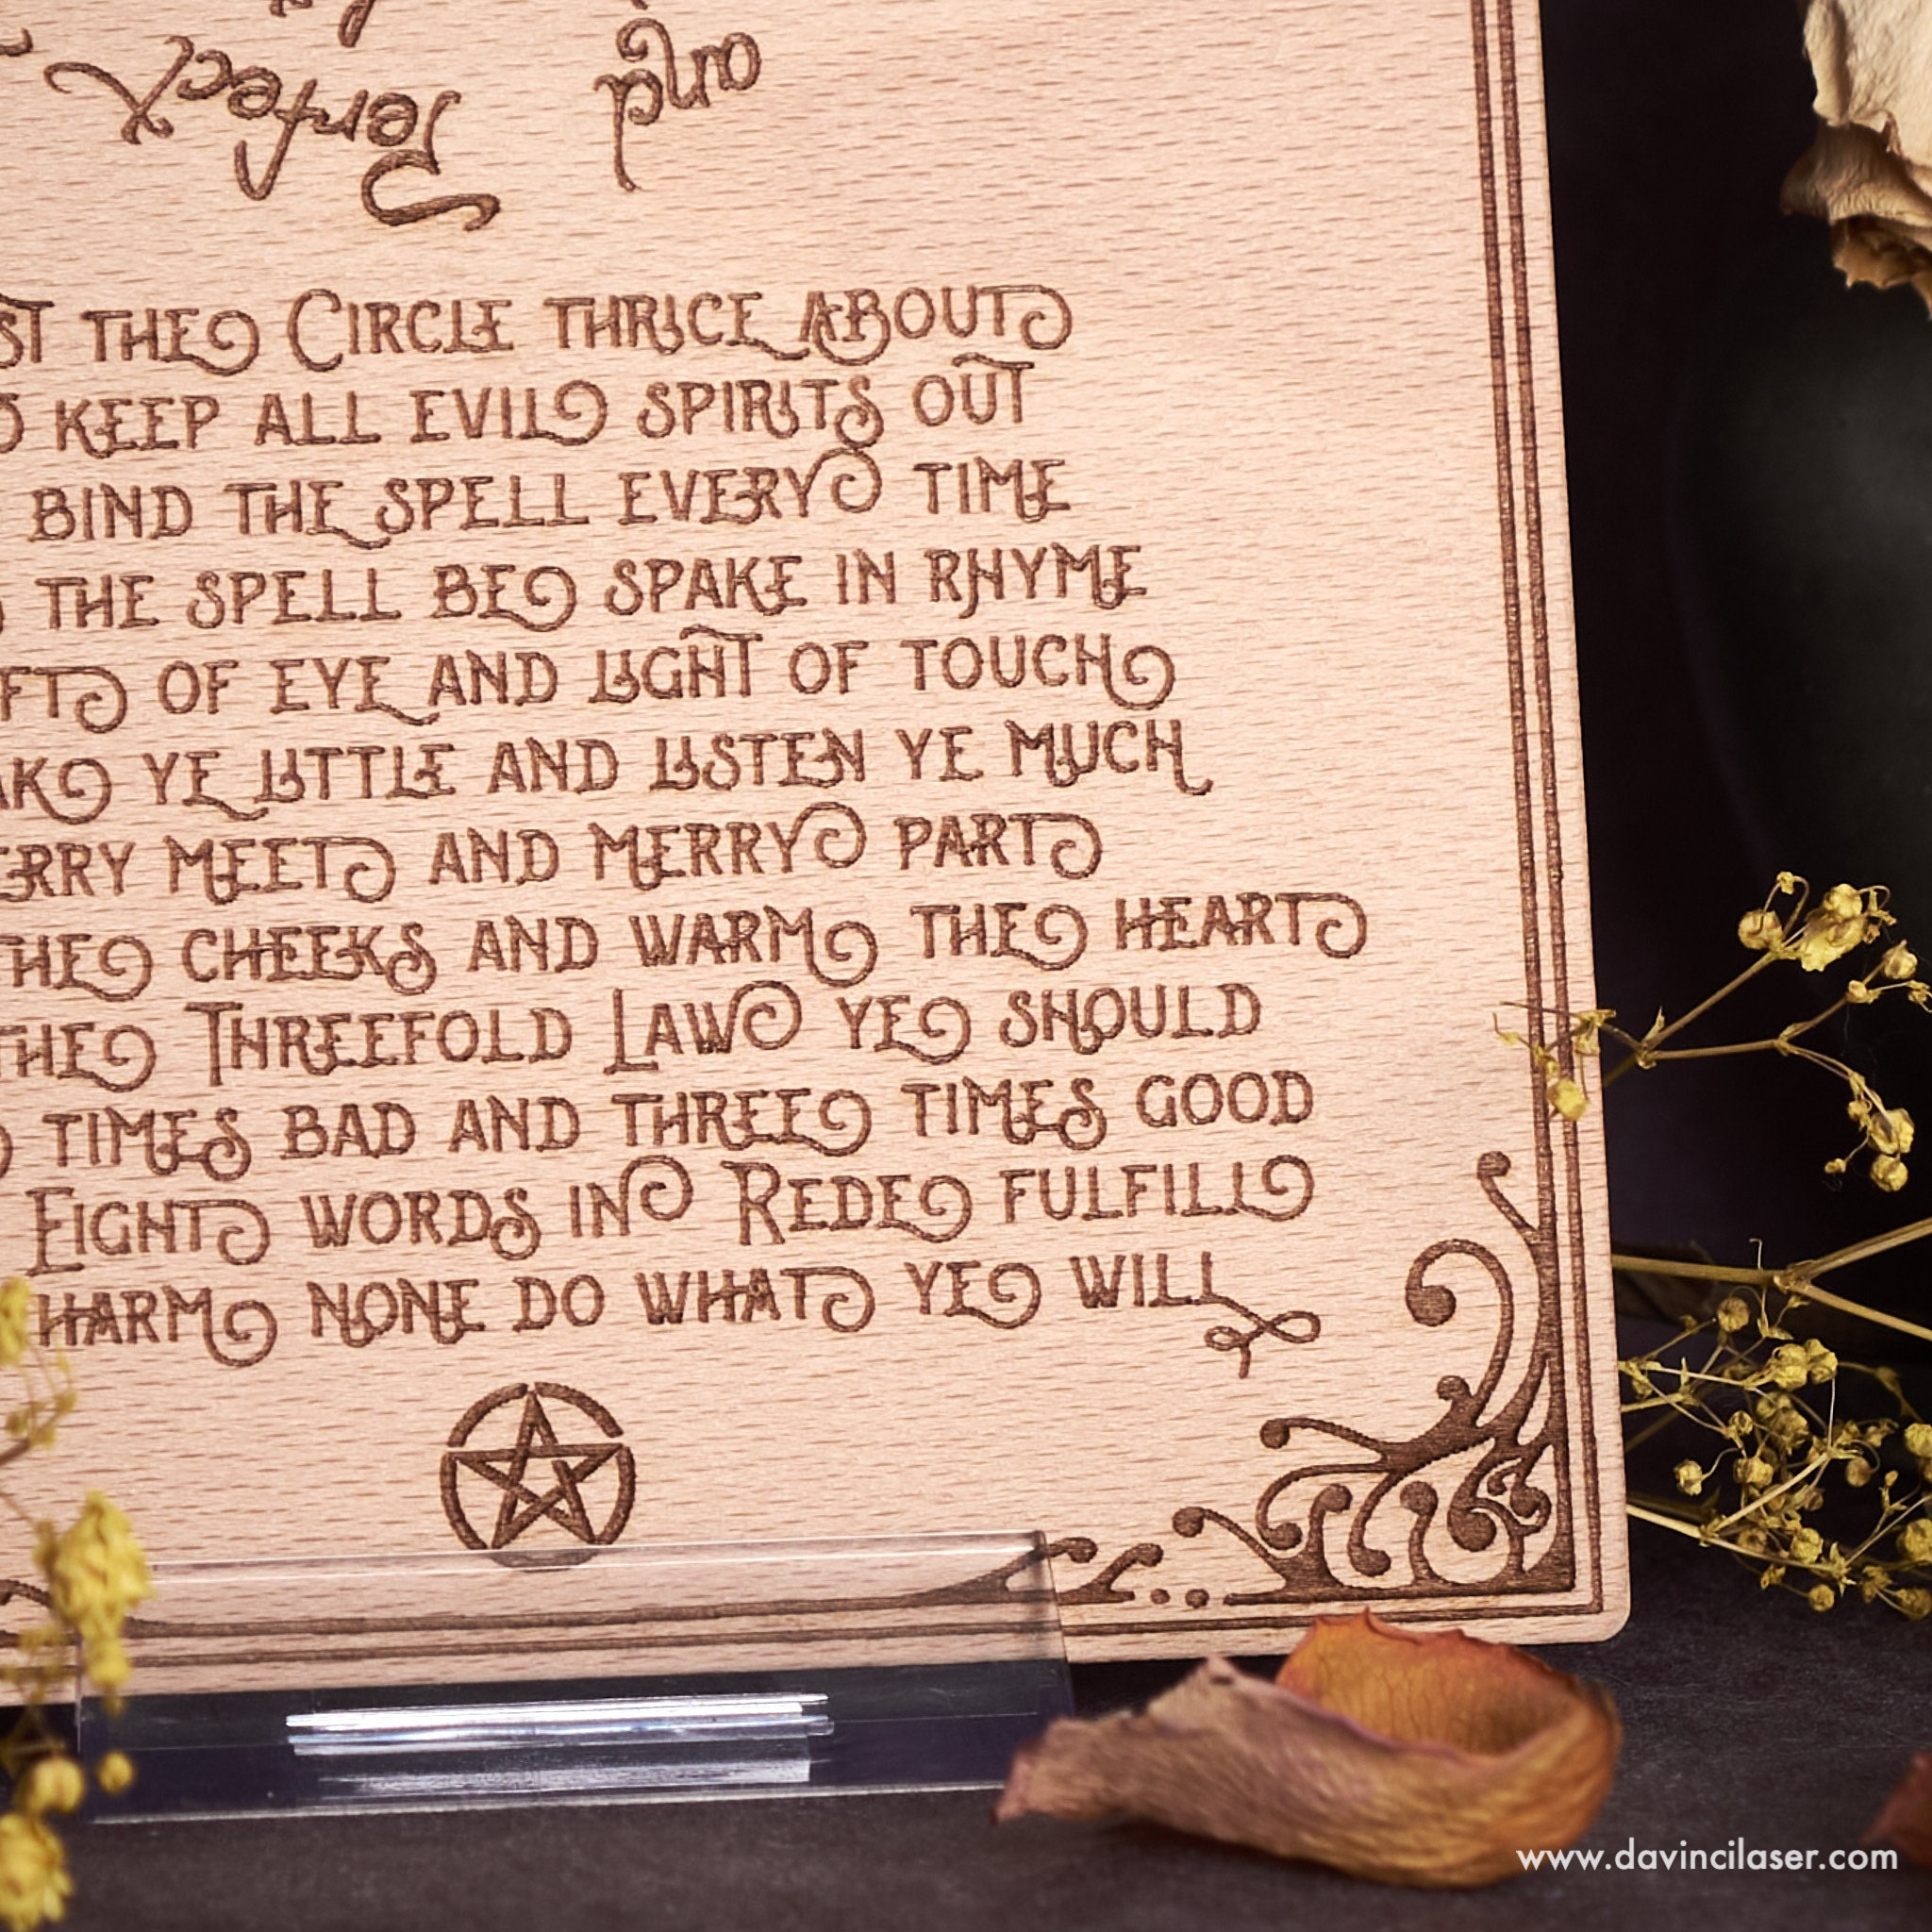 and
Perfect
THE CIRCLE THRICE ABOUT
KEEP ALL EVIL SPIRITS OUT
BIND THE SPELL EVERY TIME
THE SPELL BE SPAKE IN RHYME
OF EYE AND LIGHT OF TOUCH
YE LITTLE AND LISTEN YE MUCH
MEET AND MERRY PART
THE CHEEKS AND WARM THE HEART
THE THREEFOLD LAW YE SHOULD
TIMES BAD AND THREE TIMES GOOD
EIGHT WORDS IN REDE FULFILL
HARM NONE DO WHAT YE WILL
www.davincilaser.com